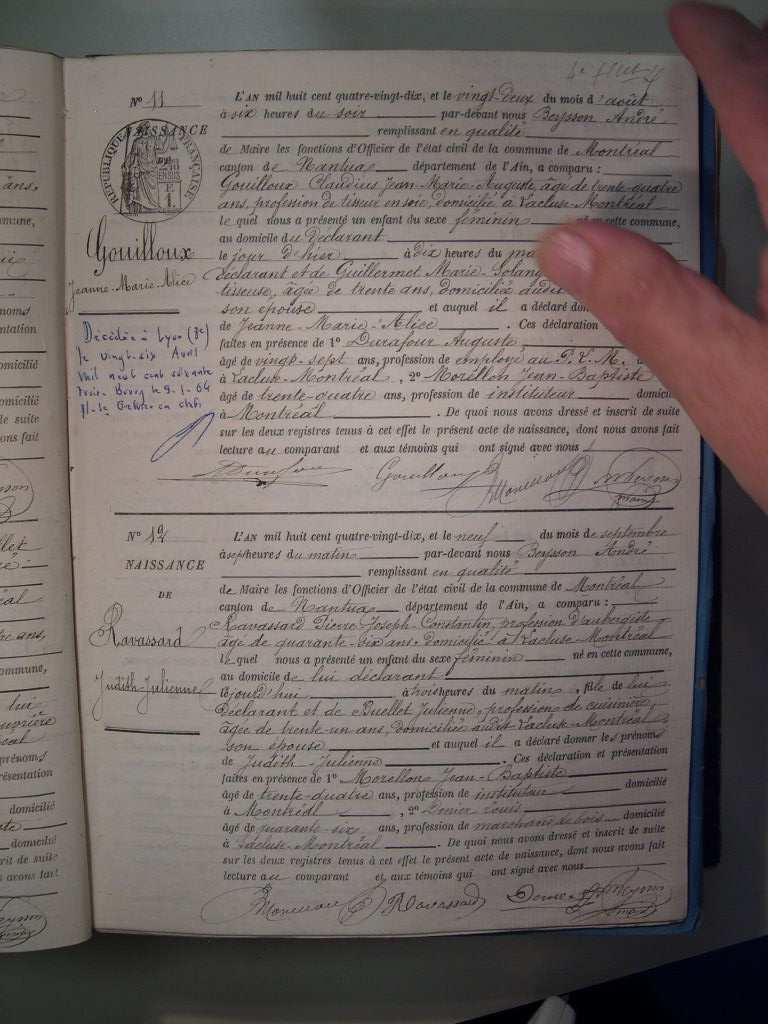 N° 11
NAISSANCE
RÉPUBLIQUE FRANÇAISE
Gouilloux
Jeanne-Marie-Alice
Décédée à Lyon (3e)
le vingt-six Avril
mil neuf cent soixante
trois. Bourg le 9.1.64
Le Greffier en chef
L'AN mil huit cent quatre-vingt-dix, et le vingt-deux du mois d'août
à six heures du soir par-devant nous Beysson André
remplissant en qualité
de Maire les fonctions d'Officier de l'état civil de la commune de Montréal
canton de Nantua département de l'Ain, a comparu :
Gouilloux Claudius Jean-Marie-Auguste, âgé de trente-quatre
ans, profession de tisseur en soie, domicilié à Lacluse-Montréal
lequel nous a présenté un enfant du sexe féminin né en cette commune,
au domicile du déclarant
le jour d'hier à dix heures du
déclarant et de Guillermet Marie-
tisseuse, âgée de trente ans, domiciliée audit
son épouse et auquel il a déclaré
de Jeanne-Marie-Alice. Ces déclaration
faites en présence de 1° Durafour Auguste
âgé de vingt-sept ans, profession de employé au P. L. M.
à Lacluse-Montréal, 2° Morellon Jean-Baptiste
âgé de trente-quatre ans, profession de instituteur
à Montréal. De quoi nous avons dressé et inscrit de suite
sur les deux registres tenus à cet effet le présent acte de naissance, dont nous avons fait
lecture au comparant et aux témoins qui ont signé avec nous
Gouilloux
N° 12
NAISSANCE
DE
Ravassard
Judith-Julienne
L'AN mil huit cent quatre-vingt-dix, et le neuf du mois de septembre
à sept heures du matin par-devant nous Beysson André
remplissant en qualité
de Maire les fonctions d'Officier de l'état civil de la commune de Montréal
canton de Nantua département de l'Ain, a comparu :
Ravassard Pierre-Joseph-Constantin, profession d'aubergiste
âgé de quarante-six ans domicilié à Lacluse-Montréal
lequel nous a présenté un enfant du sexe féminin né en cette commune,
au domicile de lui déclarant
aujourd'hui à trois heures du matin, fille de lui
déclarant et de Buellet Julienne, profession de cuisinière
âgée de trente-un ans, domiciliée audit Lacluse-Montréal
son épouse et auquel il a déclaré donner les prénoms
de Judith-Julienne. Ces déclaration et présentation
faites en présence de 1° Morellon Jean-Baptiste
âgé de trente-quatre ans, profession de instituteur domicilié
à Montréal, 2° Louis
âgé de quarante-six ans, profession de marchand de bois domicilié
à Lacluse-Montréal. De quoi nous avons dressé et inscrit de suite
sur les deux registres tenus à cet effet le présent acte de naissance, dont nous avons fait
lecture au comparant et aux témoins qui ont signé avec nous
Ravassard